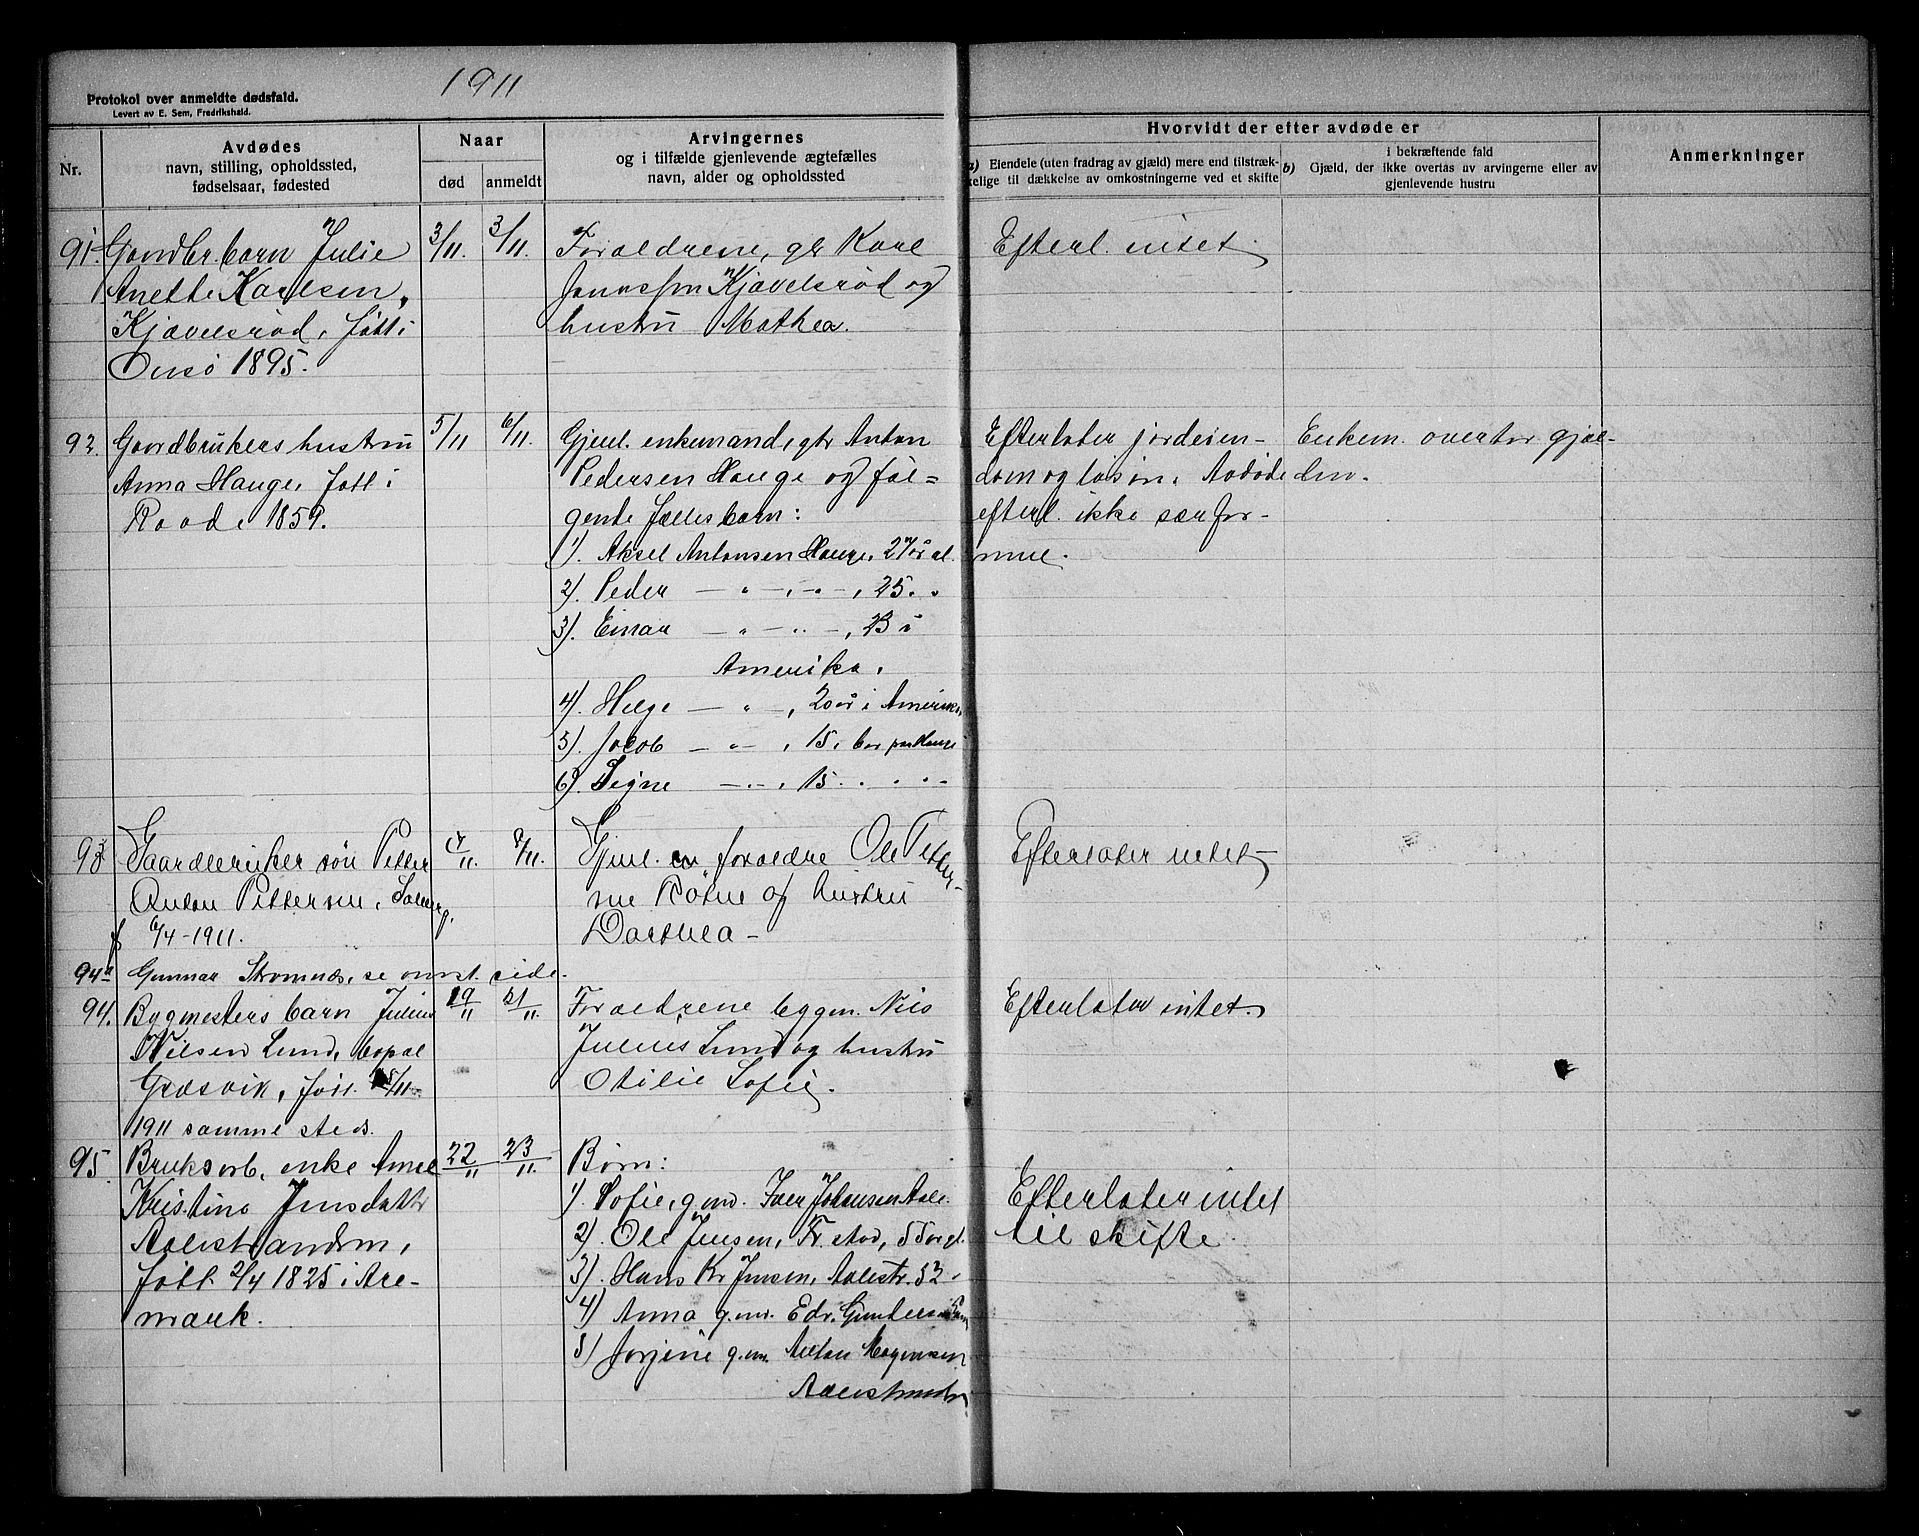 1911
Protokol over anmeldte dødsfald.
Levert av E. Sem, Fredrikshald.
Nr.
Avdødes
navn, stilling, opholdssted,
fødselsaar, fødested
Naar
død
anmeldt
Arvingernes
og i tilfælde gjenlevende ægtefælles
navn, alder og opholdssted
Hvorvidt der efter avdøde er
a) Eiendele (uten fradrag av gjæld) mere end tilstræk-
kelige til dækkelse av omkostningerne ved et skifte
i bekræftende fald
b) Gjæld, der ikke overtas av arvingerne eller av
gjenlevende hustru
Anmerkninger
91. Gaardbr. barn Julie
Anette Karlsen,
Kjævelsrød, født i
Onsø 1895.
3/11. 3/11.
Foraldrene, gbr Karl
Jonassen Kjævelsrød og
hustru Mathea.
Efterl. intet.
92. Gaardbrukers hustru
Anna Hauge, født i
Raade 1859.
5/11 6/11.
Gjenl. enkemand, gbr Anton
Pedersen Hauge og føl=
gende fælles barn:
1). Aksel Antonsen Hauge, 27 år al.
2). Peder — " — , " — , 25 " "
3). Einar — " — " — , 23 i
Amerika.
4). Helge — " — , 20 år i Amerika
5). Jacob — " — , 15, bor paa Hauge
6). Signe — " — , 15 " " " "
Efterlater jordeien-
dom og løsøre. Avdøde
efterl. ikke særfor-
mue.
Enkem. overtar gjæl-
den.
93 Gaardbruker søn Petter
Anton Pettersen, Solberg,
f 6/4-1911.
/11. /11.
Gjenl. foraldre Ole Petter-
sen Rødne og hustru
Dorthea -
Efterlater intet -
94a Gunnar Strømnæs, se omst. side.
94. Bygmesters barn Julius
Nilsen Lund, bopæl
Græsvik, født /11
1911 samme steds.
19/11 21/11.
Foraldrene byggm. Nils
Julius Lund og hustru
Otilie Sofie.
Efterlater intet.
95. Bruksarb. enke Anne
Kristine Jensdatter
Aalestranden,
født 2/4 1825 i Are-
mark.
22/11 23/11.
Børn:
1). Sofie, g.m. Iver Johansen Aale.
2). Ole Jensen, Fr.stad, 55 år gl.
3). Hans Kr Jensen, Aalestr. 52 "
4) Anna g.m. Edv. Gundersen
5) Jorjine g.m. Anton Magnussen
Aalestranden
Efterlater intet
til skifte.